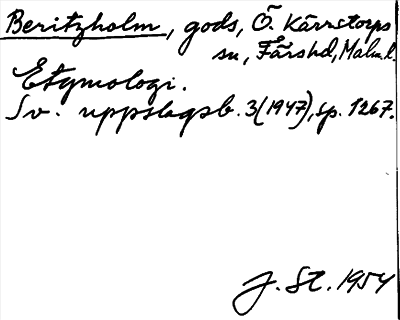 Beritzholm, gods, Ö. Kärrstorps
sn, Färshd, Malm. l.
Etymologi.
Sv. uppslagsb. 3(1947), sp. 1267.
J. St. 1954